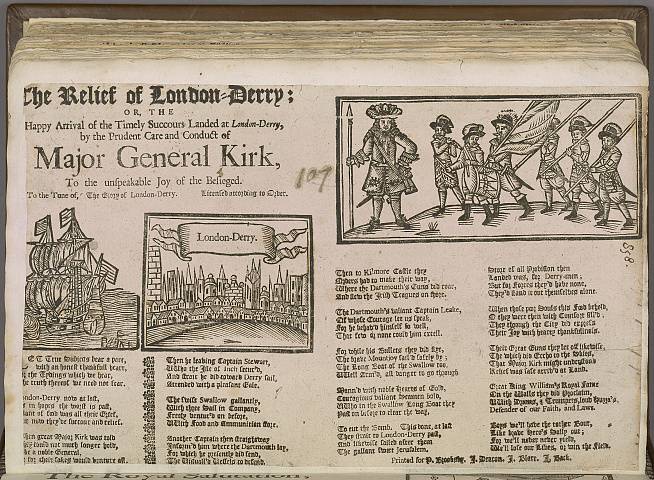 The Relief of London-Derry:
OR, THE
Happy Arrival of the Timely Succours Landed at London-Derry,
by the Prudent Care and Conduct of
Major General Kirk,
To the unspeakable Joy of the Besieged.
To the Tune of, The Glory of London-Derry. Licensed according to Order.
107
London-Derry.
with an honest thankful heart,
the truth thereof we need not fear.
London-Derry now at last,
hopes the worst is past,
may they've succour and relief.
great Major Kirk was told
could not much longer hold,
like a noble General,
Then he leaving Captain Stewart,
With the Isle of Inch secur'd,
did toward Derry sail,
Attended with a pleasant Gale.
The swift Swallow gallantly,
With three Sail in Company,
With Food and Ammunition store.
Another Captain then straightway
Inform'd him where the Dartmouth lay,
For which he presently did send,
The Victuall'd Vessels to defend.
Then to Kilmore Castle they
Orders had to make their way,
Where the Dartmouth's Guns did roar,
And slew the Irish Teagues on shore.
The Dartmouth's valiant Captain Leake,
Of whose Courage let us speak,
For he behav'd himself so well,
That few or none could him excell.
For while his Bullets they did fire,
The brave Mountjoy sail'd safely by;
The Long Boat of the Swallow too,
Well Mann'd, all danger to go through
Mann'd with noble Hearts of Gold,
Couragious valiant Seamen bold,
Who in the Swallow Long Boat they
Past on before to clear the way,
To cut the Bomb. This done, at last
They strait to London-Derry past,
And likewise sailed after them
The gallant Sweet Jerusalem.
Store of all Provision then
Landed was, for Derry-men;
But for Forces they'd have none,
They'd stand it out themselves alone.
When those poor Souls this Food beheld,
O they were then with Comfort fill'd;
They through the City did express
Their Joy with hearty thankfulness.
Their Great Guns they let off likewise,
The which did Eccho to the Skies,
That Major Kirk might understand
Relief was safe arriv'd at Land.
Great King William's Royal Fame
On the Walls they did Proclaim,
With Drums, & Trumpets, loud Huzza's,
Defender of our Faith, and Laws.
Boys we'll have the tother Bout,
Like brave Hero's sally out;
For we'll never never yield,
We'll lose our Lives, or win the Field.
Printed for P. Brooksby, J. Deacon, J. Blare, J. Back.
The Royal Salutation,